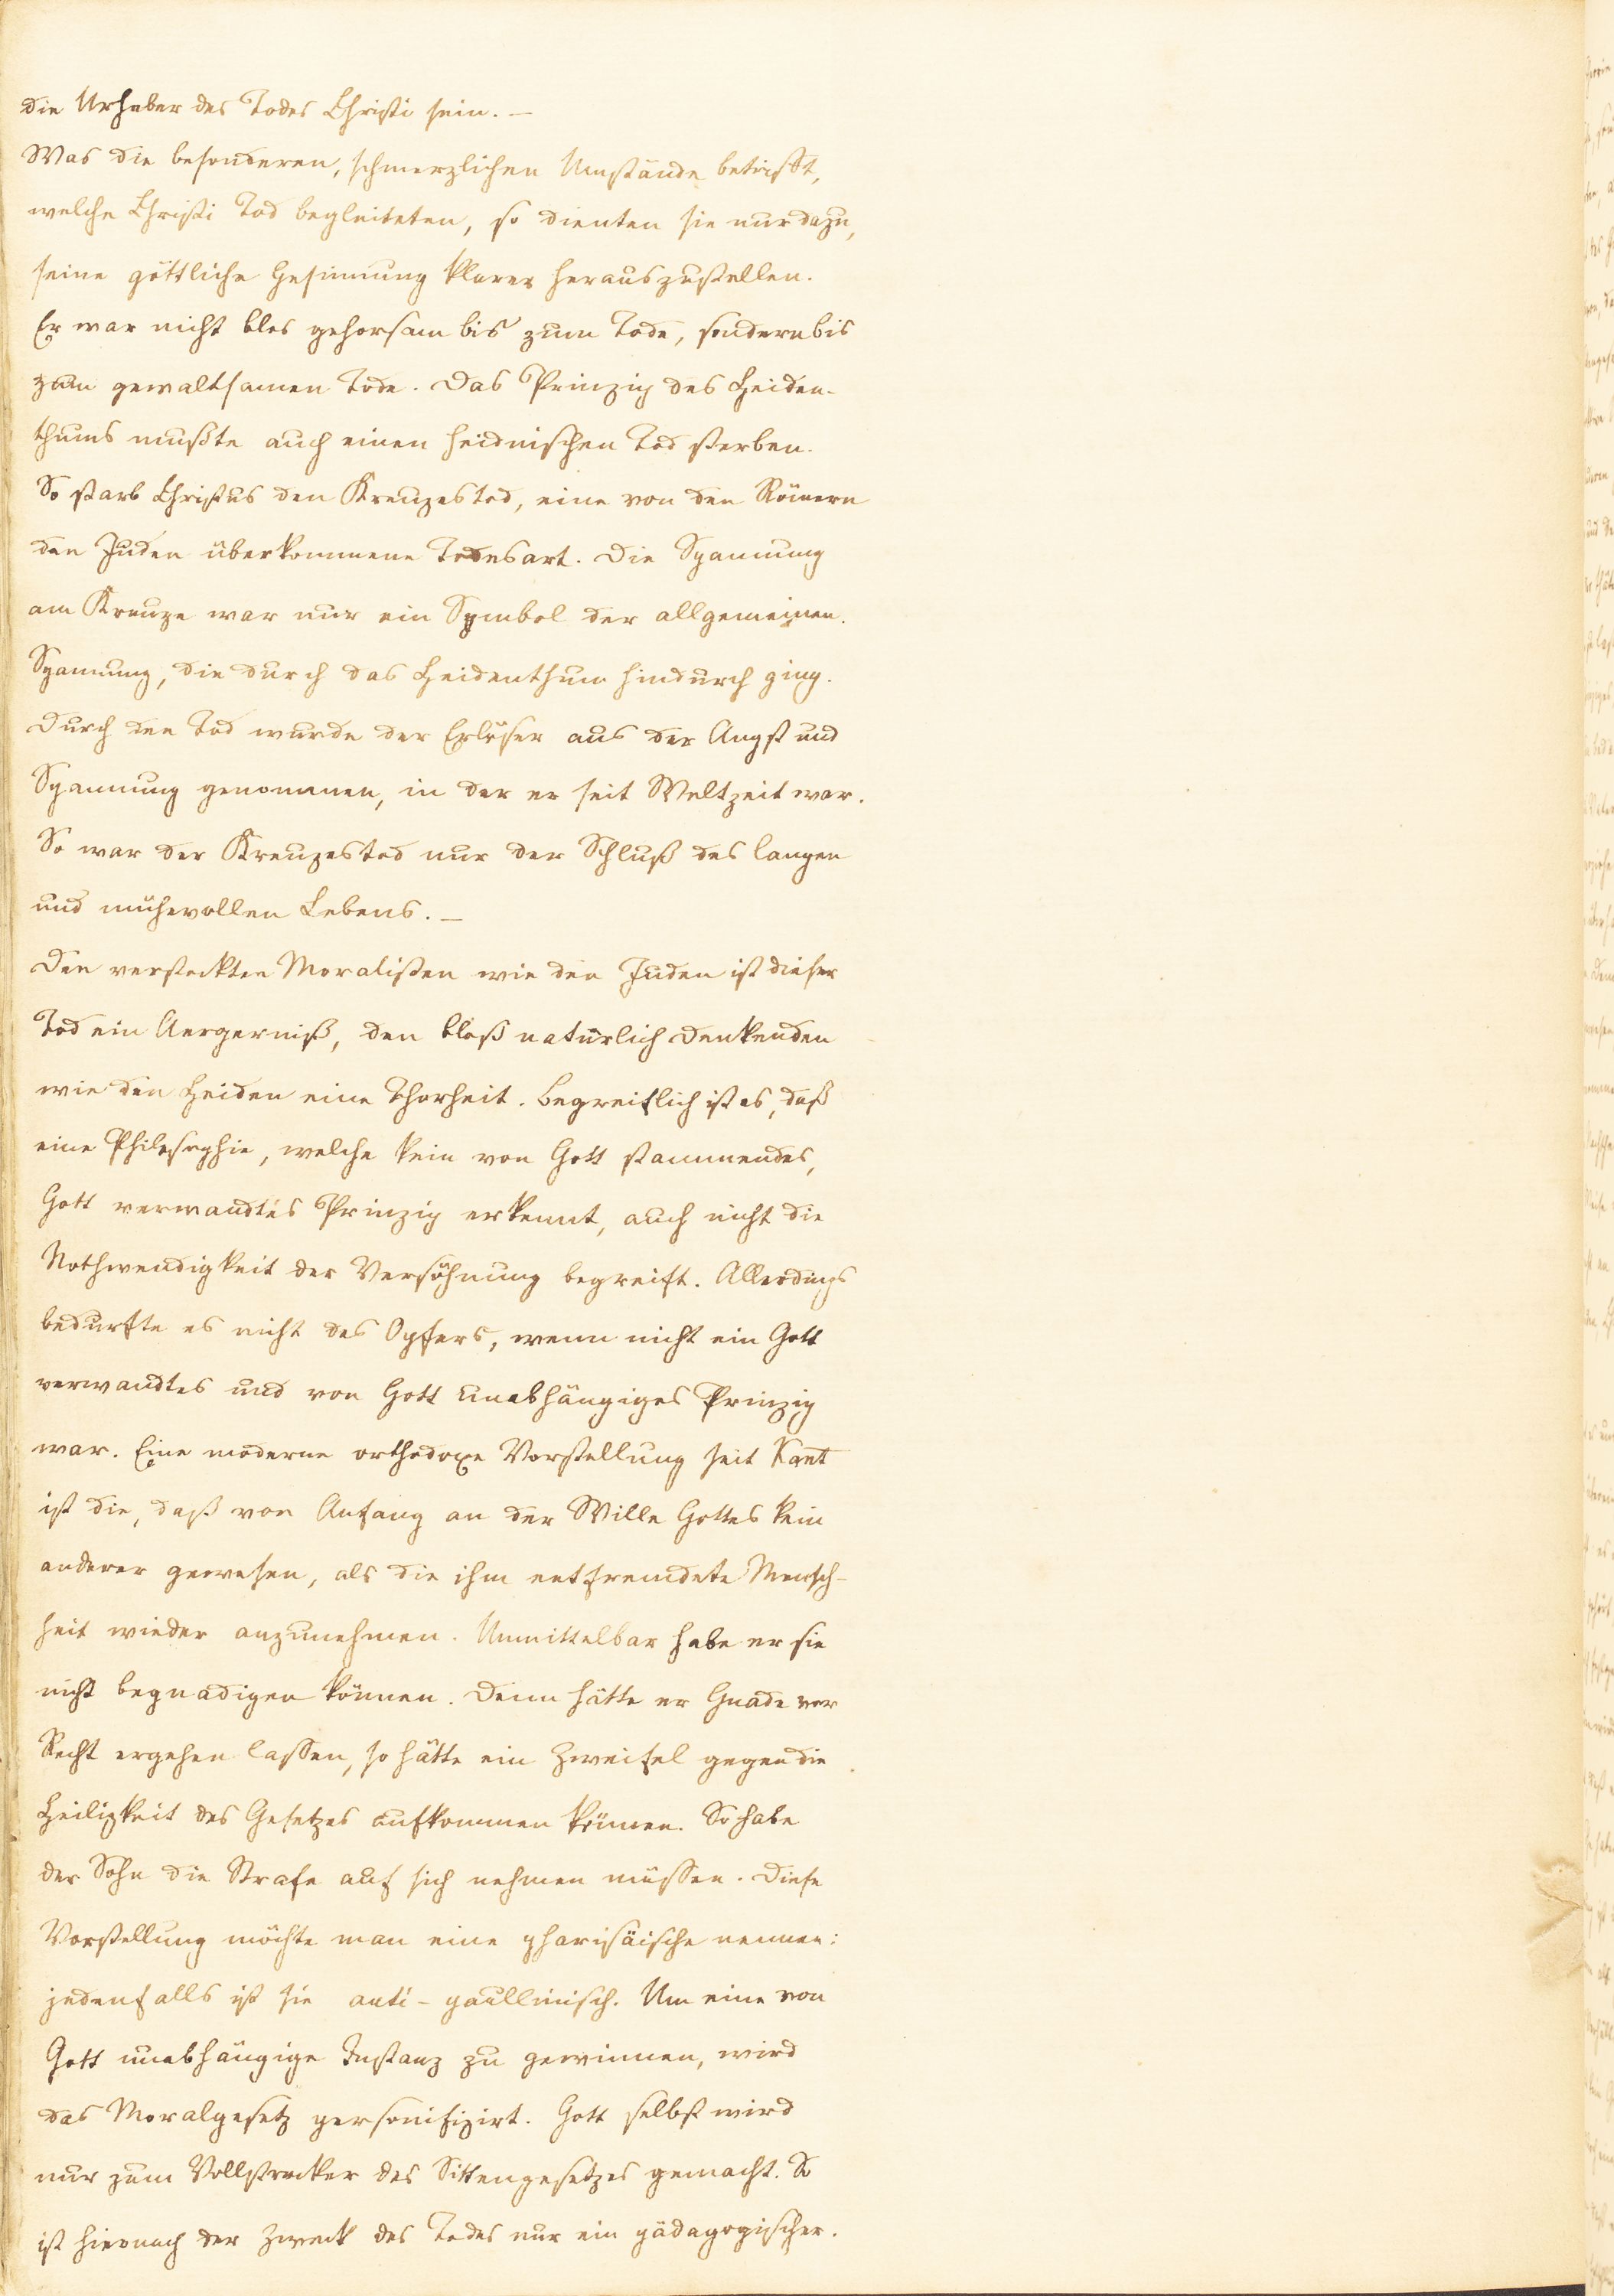 die Urheber des Todes Christi sein. –
Was die besonderen, schmerzlichen Umstände betrifft,
welche Christi Tod begleiteten, so dienten sie nur dazu,
seine göttliche Gesinnung klarer herauszustellen.
Er war nicht blos gehorsam bis zum Tode, sondern bis
zum gewaltsamen Tode. Das Prinzip des Heiden-
thums mußte auch einen heidnischen Tod sterben.
So starb Christus den Kreuzestod, eine von den Römern
den Juden überkommene Todesart. Die Spannung
am Kreuze war nur ein Symbol der allgemeinen.
Spannung, die durch das Heidenthum hindurch ging.
Durch den Tod wurde der Erlöser aus der Angst und
Spannung genommen, in der er seit Weltzeit war.
So war der Kreuzestod nur der Schluß des langen
und mühevollen Lebens. –
Den versteckten Moralisten wie den Juden ist dieser
Tod ein Aergerniß, den bloß natürlich denkenden
wie den Heiden eine Thorheit. Begreiflich ist es, daß
eine Philosophie, welche kein von Gott stammendes,
Gott verwandtes Prinzip erkennt, auch nicht die
Nothwendigkeit der Versöhnung begreift. Allerdings
bedurfte es nicht des Opfers, wenn nicht ein Gott
verwandtes und von Gott unabhängiges Prinzip
war. Eine moderne orthodoxe Vorstellung seit Kant
ist die, daß von Anfang an der Wille Gottes kein
anderer gewesen, als die ihm entfremdete Mensch-
heit wieder anzunehmen. Unmittelbar habe er sie
nicht begnadigen können. Denn hätte er Gnade vor
Recht ergehen lassen, so hätte ein Zweifel gegen die
Heiligkeit des Gesetzes aufkommen können. So habe
der Sohn die Strafe auf sich nehmen müssen. Diese
Vorstellung möchte man eine pharisäische nennen:
jedenfalls ist sie anti-paullinisch. Um eine von
Gott unabhängige Instanz zu gewinnen, wird
das Moralgesetz personifizirt. Gott selbst wird
nur zum Vollstrecker des Sittengesetzes gemacht. So
ist hiernach der Zweck des Todes nur ein pädagogischer.